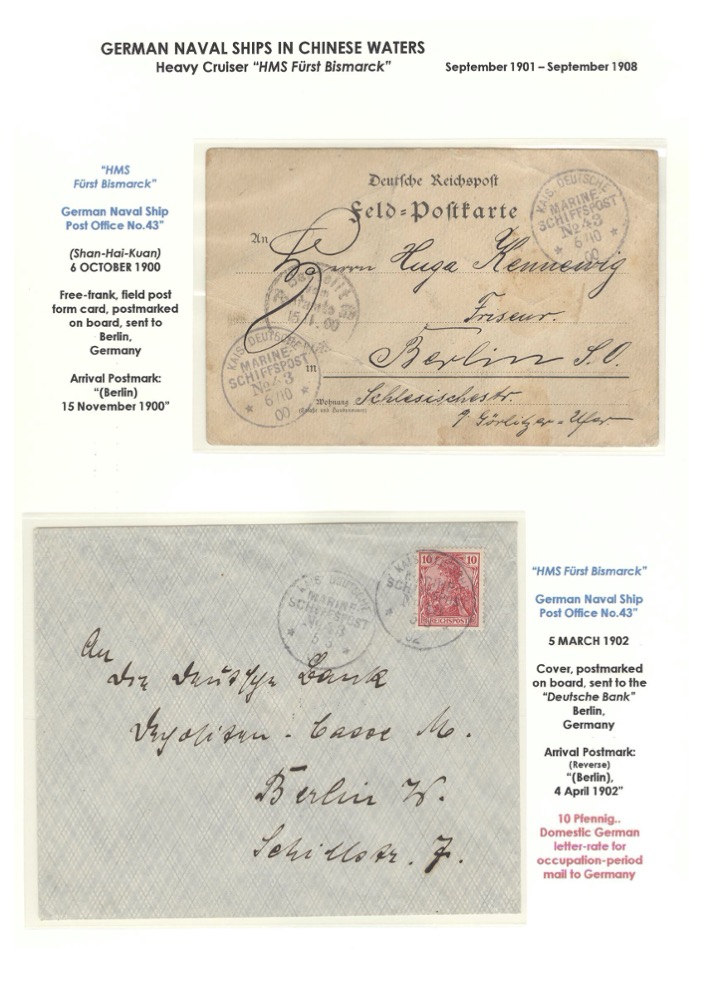 GERMAN NAVAL SHIPS IN CHINESE WATERS
Heavy Cruiser “HMS Fürst Bismarck” September 1901 – September 1908
“HMS
Fürst Bismarck”
German Naval Ship
Post Office No.43”
(Shan-Hai-Kuan)
6 OCTOBER 1900
Free-frank, field post
form card, postmarked
on board, sent to
Berlin,
Germany
Arrival Postmark:
“(Berlin)
15 November 1900”
Deutsche Reichspost
Feld=Postkarte
KAIS. DEUTSCHE
MARINE-
SCHIFFSPOST
No 43
6/10
00
An
Herrn Hugo Kennewig
Friseur.
in Berlin S.O.
Wohnung Schlesischestr.
Görlitzer-Ufer.
KAIS. DEUTSCHE
MARINE-
SCHIFFSPOST
No 43
6/10
00
KAIS. DEUTSCHE
MARINE-
SCHIFFSPOST
No 43
10 10
REICHSPOST
02
An
die Deutsche Bank
Depositen - Casse M.
Berlin W.
Schillstr. 7.
“HMS Fürst Bismarck”
German Naval Ship
Post Office No.43”
5 MARCH 1902
Cover, postmarked
on board, sent to the
“Deutsche Bank”
Berlin,
Germany
Arrival Postmark:
(Reverse)
“(Berlin),
4 April 1902”
10 Pfennig..
Domestic German
letter-rate for
occupation-period
mail to Germany